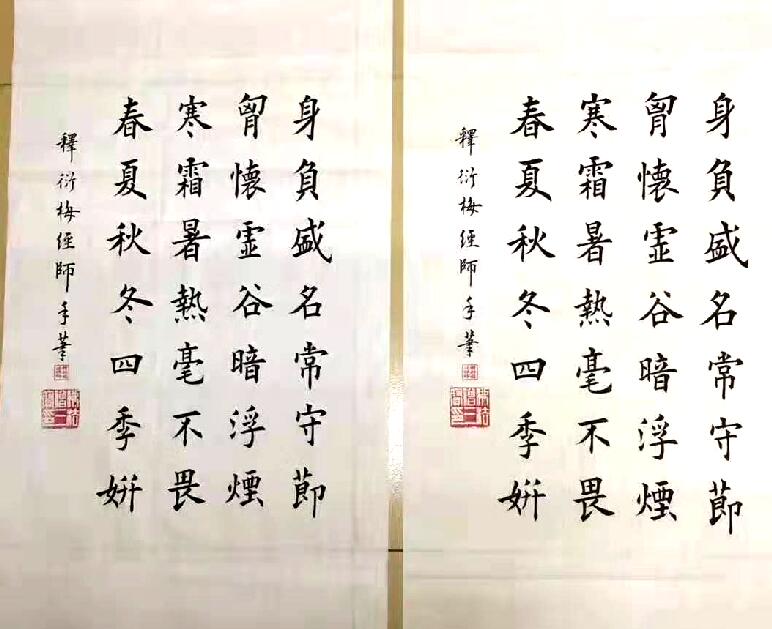 身負盛名常守莭
胷懷霊谷暗浮煙
寒霜暑熱毫不畏
春夏秋冬四季姸
釋衍梅經師手筆
身負盛名常守莭
胷懷霊谷暗浮煙
寒霜暑熱毫不畏
春夏秋冬四季姸
釋衍梅經師手筆